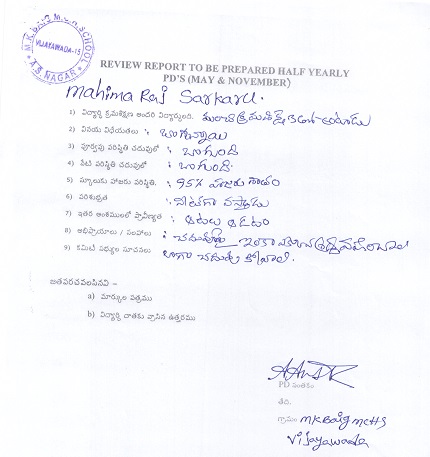 M.K. BAIG M.C.H. SCHOOL
VIJAYAWADA-15
A.S. NAGAR
REVIEW REPORT TO BE PREPARED HALF YEARLY
PD'S (MAY & NOVEMBER)
Mahima Raj Sarkaru.
1) విద్యార్థి క్రమశిక్షణ అందరి విద్యార్థులది.
2) వినయ విధేయతలు : బాగున్నాయి
3) పూర్వపు పరిస్థితి చదువులో : బాగుంది
4) నేటి పరిస్థితి చదువులో : బాగుంది.
5) స్కూలుకు హాజరు పరిస్థితి. : 95% హాజరు శాతం
6) పరిశుభ్రత : నీట్‌గా వస్తాడు
7) ఇతర అంశములలో ప్రావీణ్యత : ఆటలు ఆడటం
8) అభిప్రాయాలు / సలహాలు : చదువుపై ఇంకా
9) కమిటీ సభ్యుల సూచనలు బాగా
జతపరచవలసినవి –
a) మార్కుల పత్రము
b) విద్యార్థి దాతకు వ్రాసిన ఉత్తరము
PD సంతకం
తేది.
గ్రామం MK Baig MCHS
Vijayawada